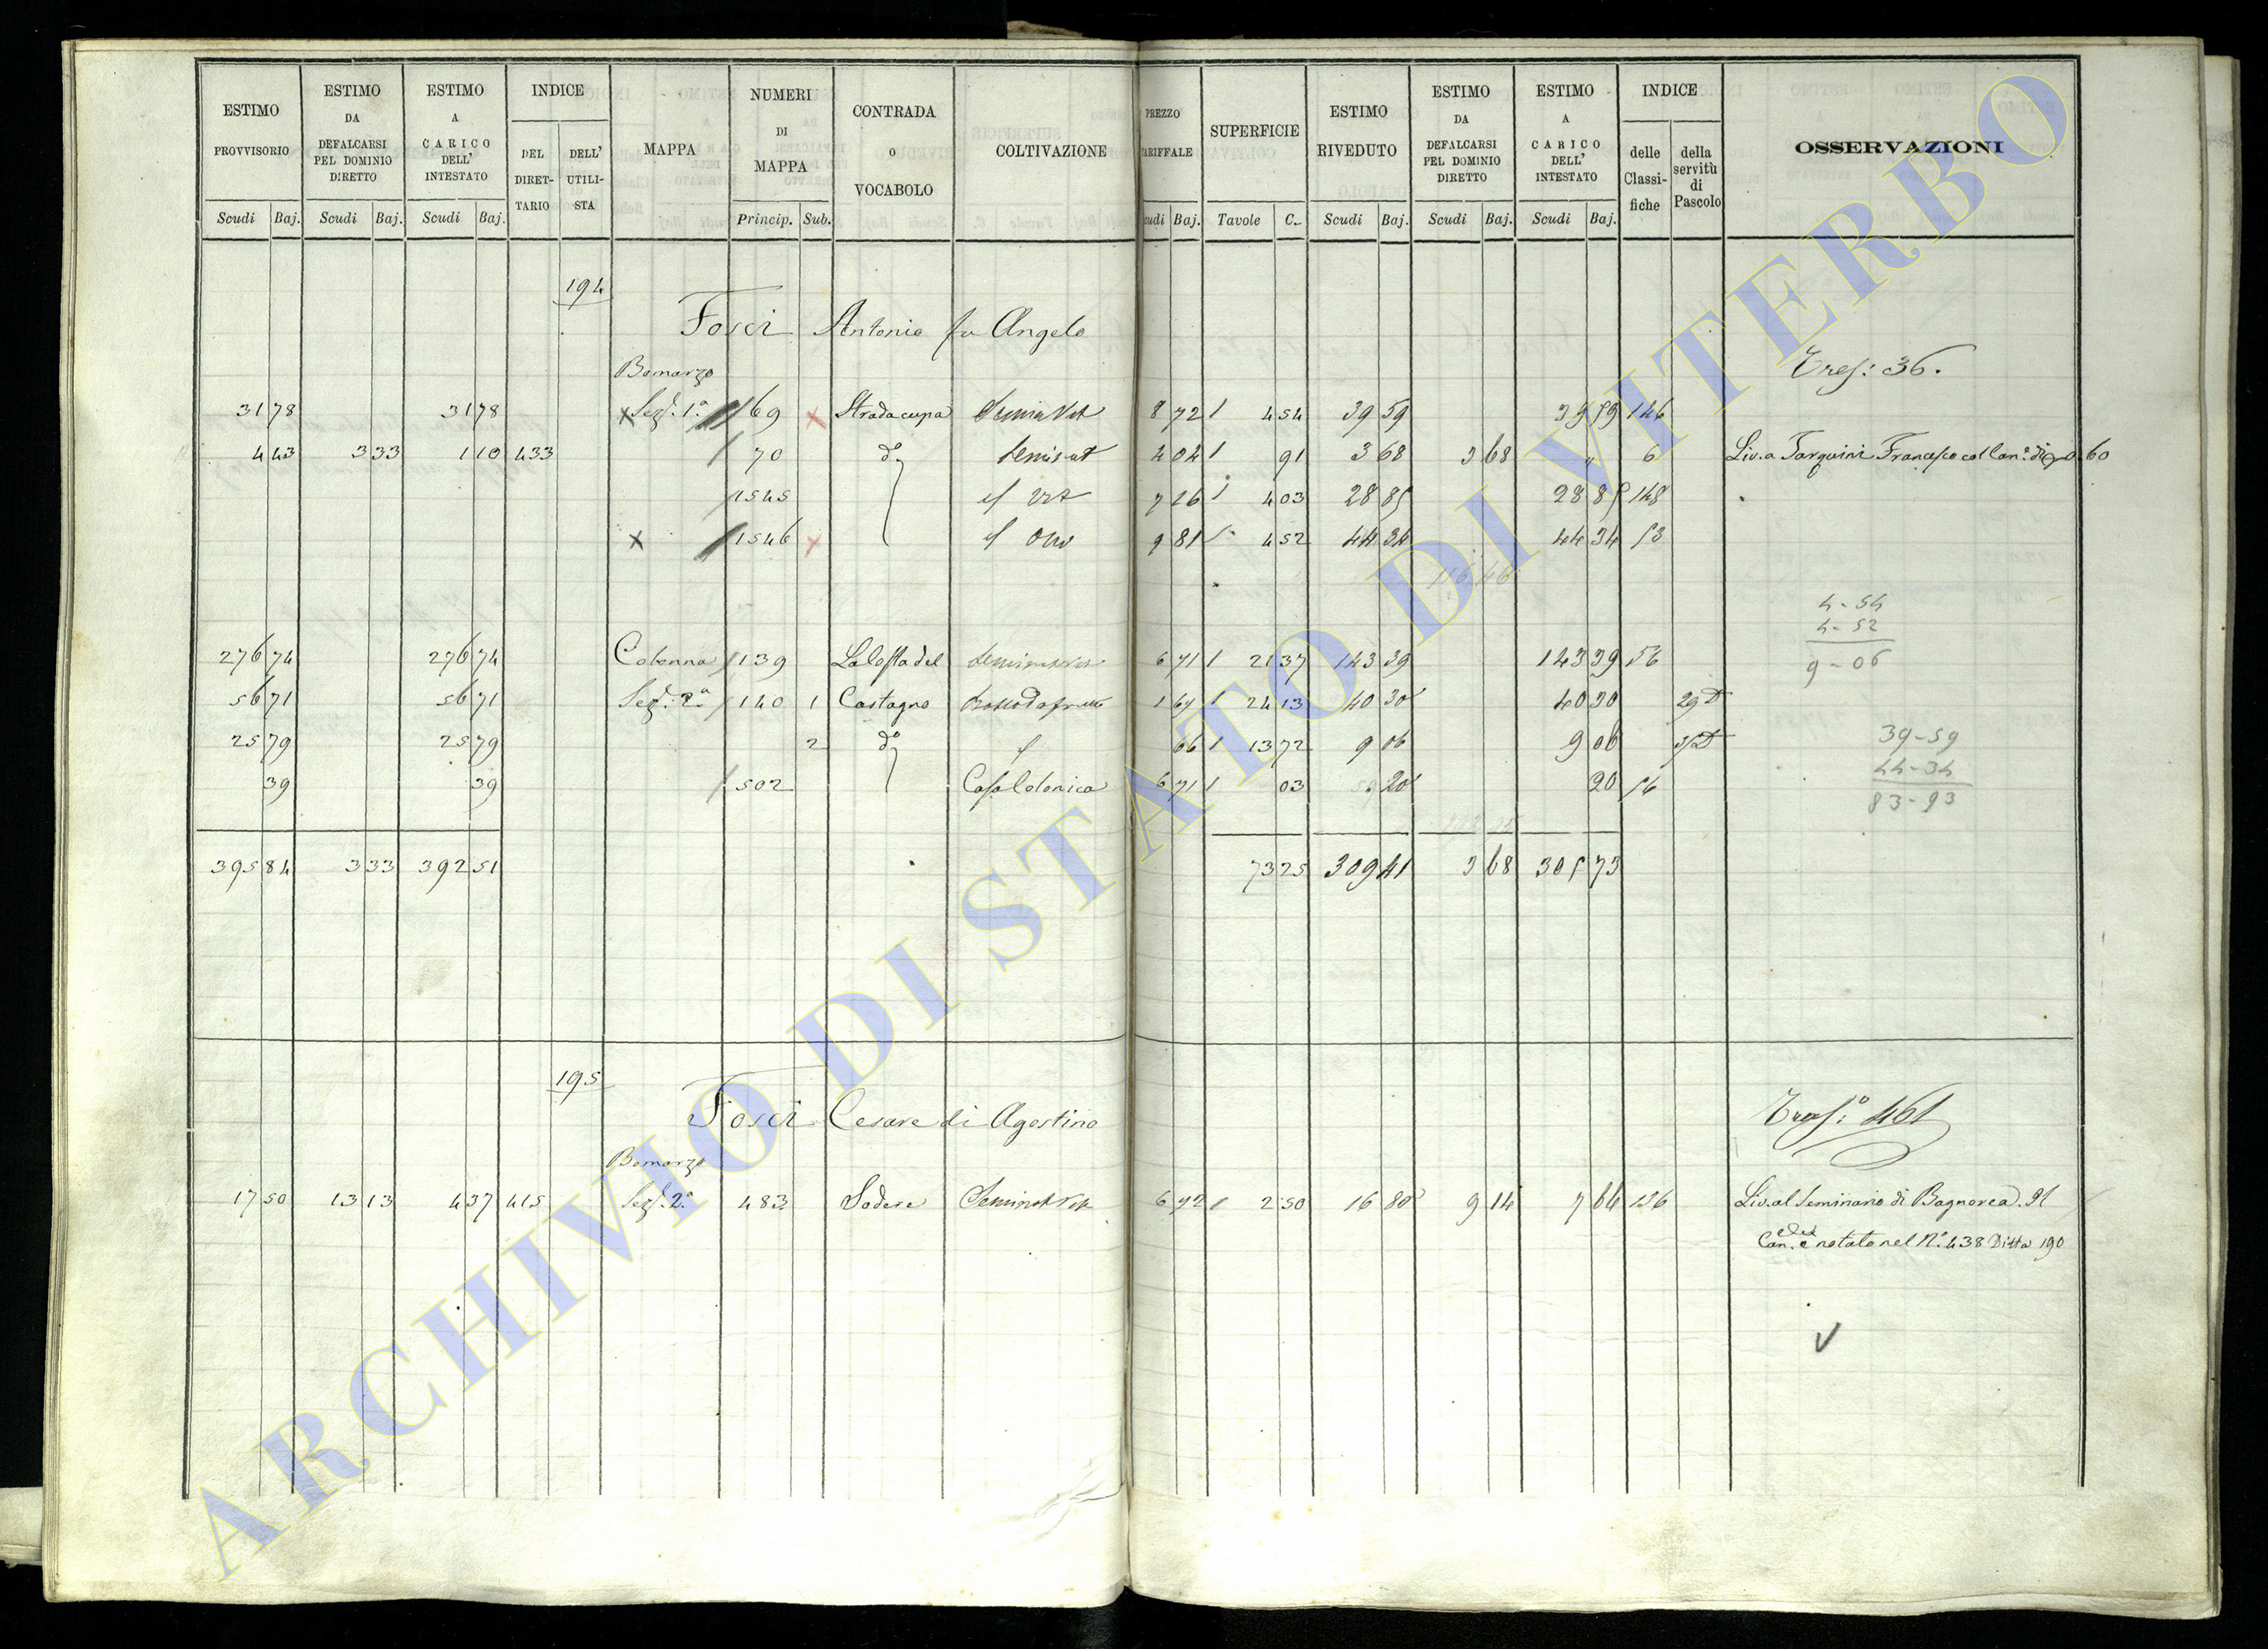 ESTIMO PROVVISORIO Scudi Baj.
ESTIMO DA DEFALCARSI PEL DOMINIO DIRETTO Scudi Baj.
ESTIMO A CARICO DELL' INTESTATO Scudi Baj.
INDICE DEL DIRET-TARIO DELL' UTILI-STA
MAPPA
NUMERI DI MAPPA Princip. Sub.
CONTRADA O VOCABOLO
COLTIVAZIONE
PREZZO TARIFFALE Scudi Baj.
SUPERFICIE Tavole C.
ESTIMO RIVEDUTO Scudi Baj.
ESTIMO DA DEFALCARSI PEL DOMINIO DIRETTO Scudi Baj.
ESTIMO A CARICO DELL' INTESTATO Scudi Baj.
INDICE delle Classi-fiche della servitù di Pascolo
OSSERVAZIONI
194
Fosci Antonio fu Angelo
Bomarzo
Tras: 36.
31 78 31 78 Sez. 1ª 69 Strada cupa Semin Vit 8 72 4 54 39 59 39 59 146
4 43 3 33 1 10 433 70 dº 4 04 91 3 68 3 68 " 6 Liv. a Tarquini Francesco col Can.º di 60
1545 7 26 4 03 28 85 28 85 148
1546 9 81 4 52 44 34 44 34 53
116 46
4-54
4-52
9-06
276 74 276 74 Colonna 139 La Costa del 6 71 21 37 143 39 143 39 56
56 71 56 71 Sez. 2ª 140 1 Castagno Bosco da frutto 1 67 24 13 40 30 40 30 29 D
25 79 25 79 2 dº 66 13 72 9 06 9 06 D
39 39 502 Casa Colonica 6 71 03 20 20 56
39-59
44-34
83-93
395 84 3 33 392 51 73 25 309 41 3 68 305 73
195
Fosci Cesare di Agostino
Tras:º 461
Bomarzo
17 50 13 13 4 37 415 Sez. 2ª 483 Sadere Seminat Vit 6 72 2 50 16 80 9 14 7 66 136 Liv. al Seminario di Bagnorea. Il
Can.e è notato nel N.º 438 Ditta 190
ARCHIVIO DI STATO DI VITERBO